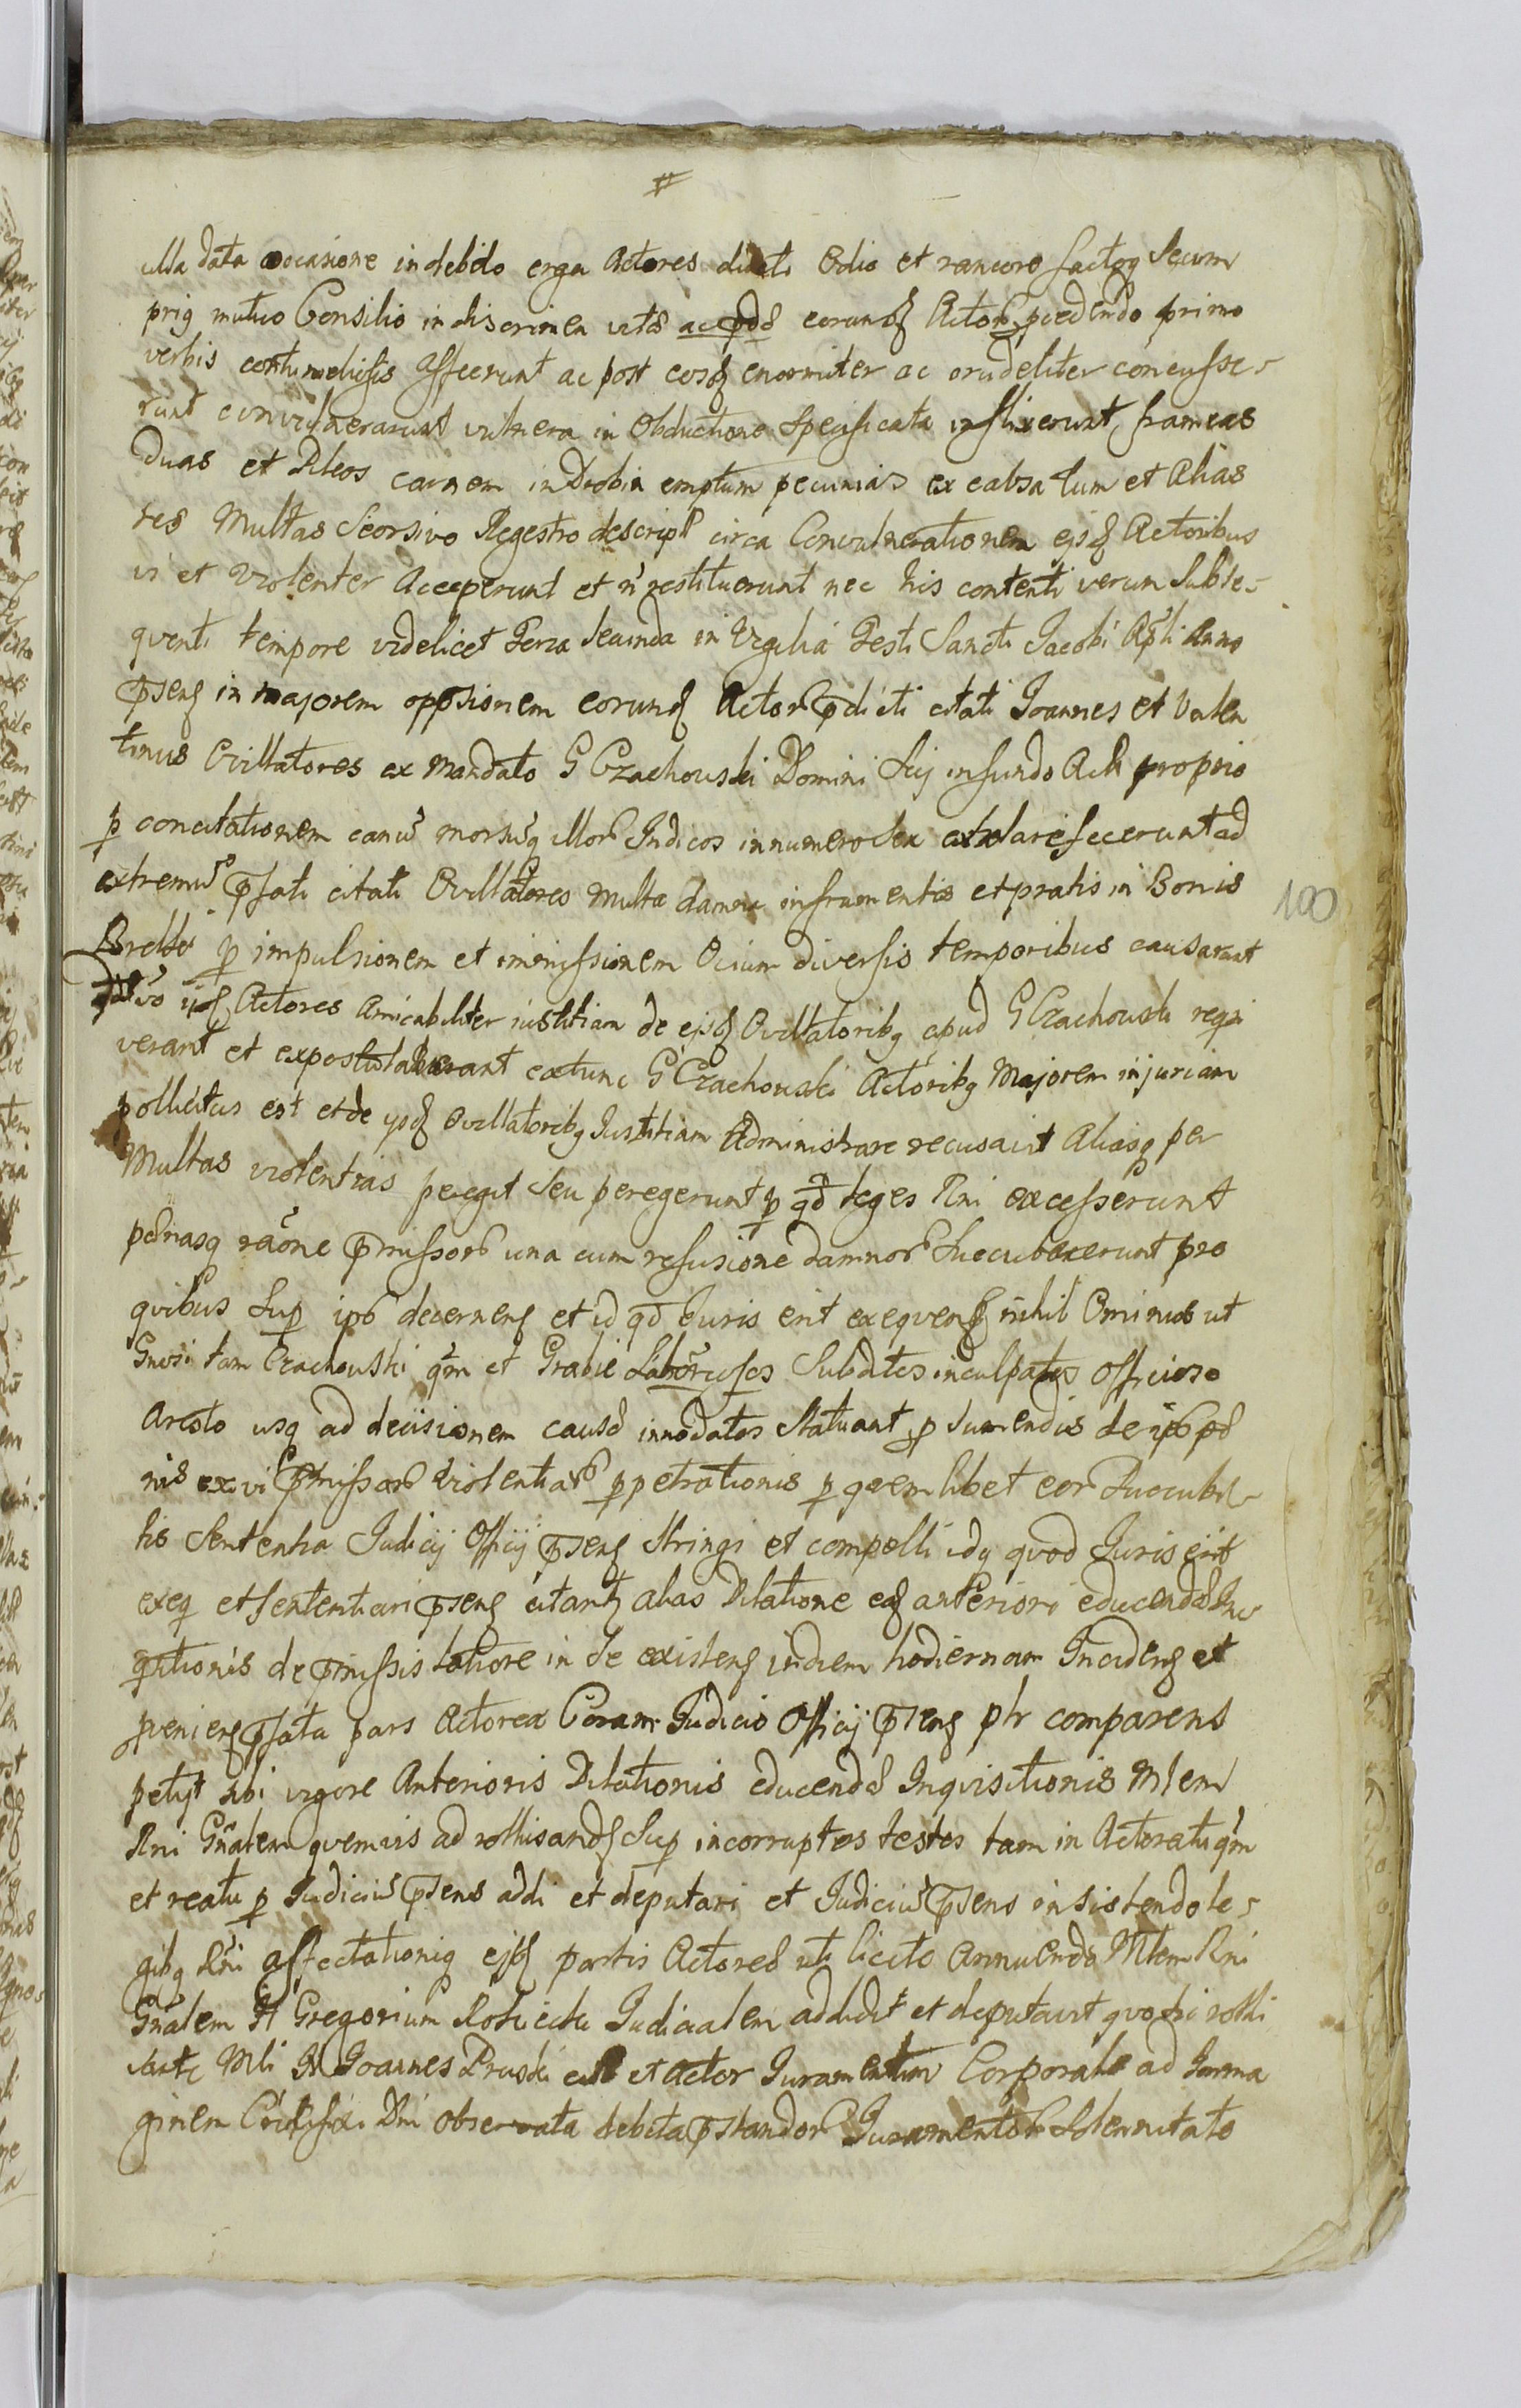 #
ulla data occasione indebito erga Actores ducti Odio et rancore factoq Secum
prig mutuo Consilio in discrimen vitæ eorundq Actor pcedendo primo
verbis contumeliosis affecerunt ac post eosq enormiter ac crudeliter concusse-
runt convulnerarunt vulnera in Obductione Specificata inflixerunt, frameas
duas et Pileos carnem in Drobin emptum pecunias ex eabsa tum et Alias
res Multas Seorsivo Regestro descript circa Convulnerationem ejsq Actoribus
vi et violenter Acceperunt et n restituerunt nec his contenti verum Subse-
quenti tempore videlicet Feria Secunda in Vigilia Festi Sancti Jacobi Apli Anno
psenq in majorem oppsionem eorunq Actor pdicti citati Joannes et Valen
tinus Ovillatores ex Mandato G Czachowski Domini Sui in fundo Actt proprio
p concitationem canu morsuq illor Indicos in numero Sex fecerunt ad
extremu psati citati Ovillatores Multa damna in frumentis et pratis in Bonis
p impulsionem et immissionem Ovium diversis temporibus causarunt
vo iisq Actores Amicabiliter iustitiam de ejsq Ovillatoribq apud G Czachowski requi
verant et expostulaverant extunc G Czachowski Actoribq Majorem injuriam
pollicitus est et de ysq Ovillatoribq Justitiam Administrare recusavit Aliasq per
Multas violentias peregit Seu peregerunt p qd leges Rni excesserunt
pænasq raone pmissor una cum refusione damnor Succubuerunt pro
quibus Sup ipb decernenq et id qd Juris erit exequenq nihil Ominus ut
Gnosi tam Czachowski qm et Grabie Laboriosos Subditos inculpatos Officioso
Aresto usq ad decisionem causæ innodatos Statuant p Sumendis de ipb pæ
nis ex vi pmissor violentiar ppetrationis p quemlibet eor Succubi-
tis Sententia Judicij Officij psenq Stringi et compelli idq quod Juris erit
exeq et sententiari psenq citantq alias Dilatione eaq anteriori educendæ In-
qsitionis de pmissis latiore in se existenq in diem hodiernam Incidenq et
pvenienq psata pars Actorea Coram Judicio Officij psenq plr comparens
petijt sibi vigore Anterioris Dilationis educendæ Inquisitionis Mlem
Rni Gnalem quemvis ad rothisandq Sup incorruptos testes tam in Actoratu qm
et reatu p Judiciu psens addi et deputari et Judiciu psens insistendo le-
gibq Rni affectationiq ejsq partis Actoreæ uti licito Annuendo Mlem Rni
Gnalem H Gregorium Judicialem addidit et deputavit quotri rothi
sante Mli H Joannes Pruski et Actor Juramentum Corporale ad Jmma
ginem Crucifixi Dni observata debita pstandor Juramentor Solennitate
100